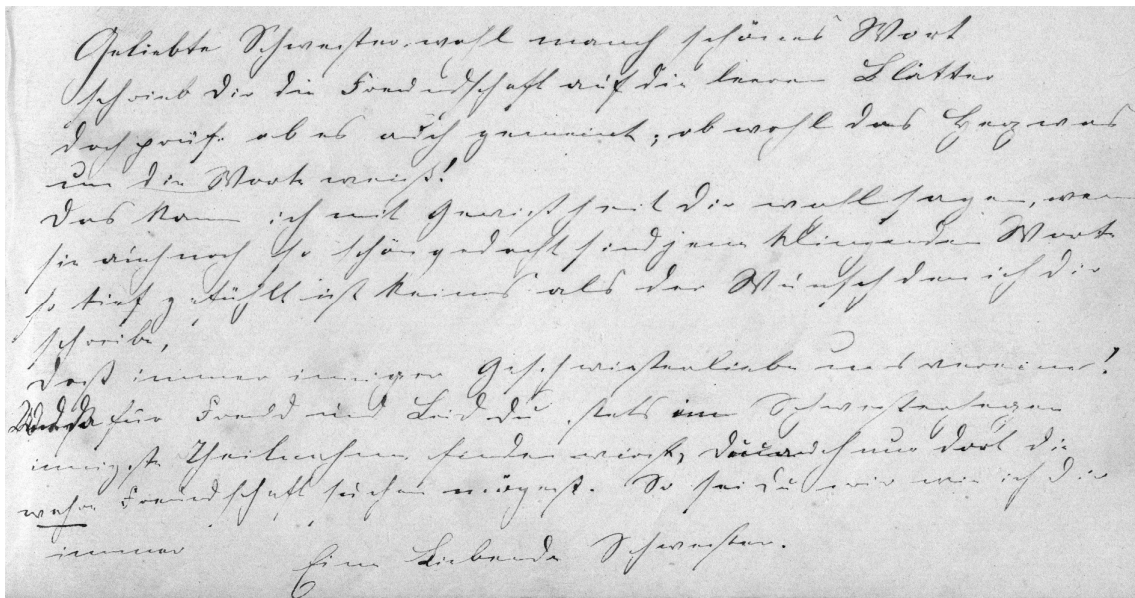 Geliebte Schwester, wohl manch schönes Wort
schrieb Dir die Freundschaft auf die leeren Blätter
doch prüfe ob es auch gemeint, ob wohl das Herz was
um die Worte weiß!
Das kann ich mit Gewißheit dir wohl sagen, wenn
sie auch noch so schön gedacht sind jene klingenden Worte
so tief gefühlt ist keines als der Wunsch den ich dir
schreibe,
Daß immer inniger Geschwisterliebe uns vereine!
für Freud und Leid du stets im Schwesterherzen
innigste Theilnahme finden wirst, auch nur dort die
wahre Freundschaft suchen mögest. So sei du mir wie ich dir
immer
Eine Liebende Schwester.